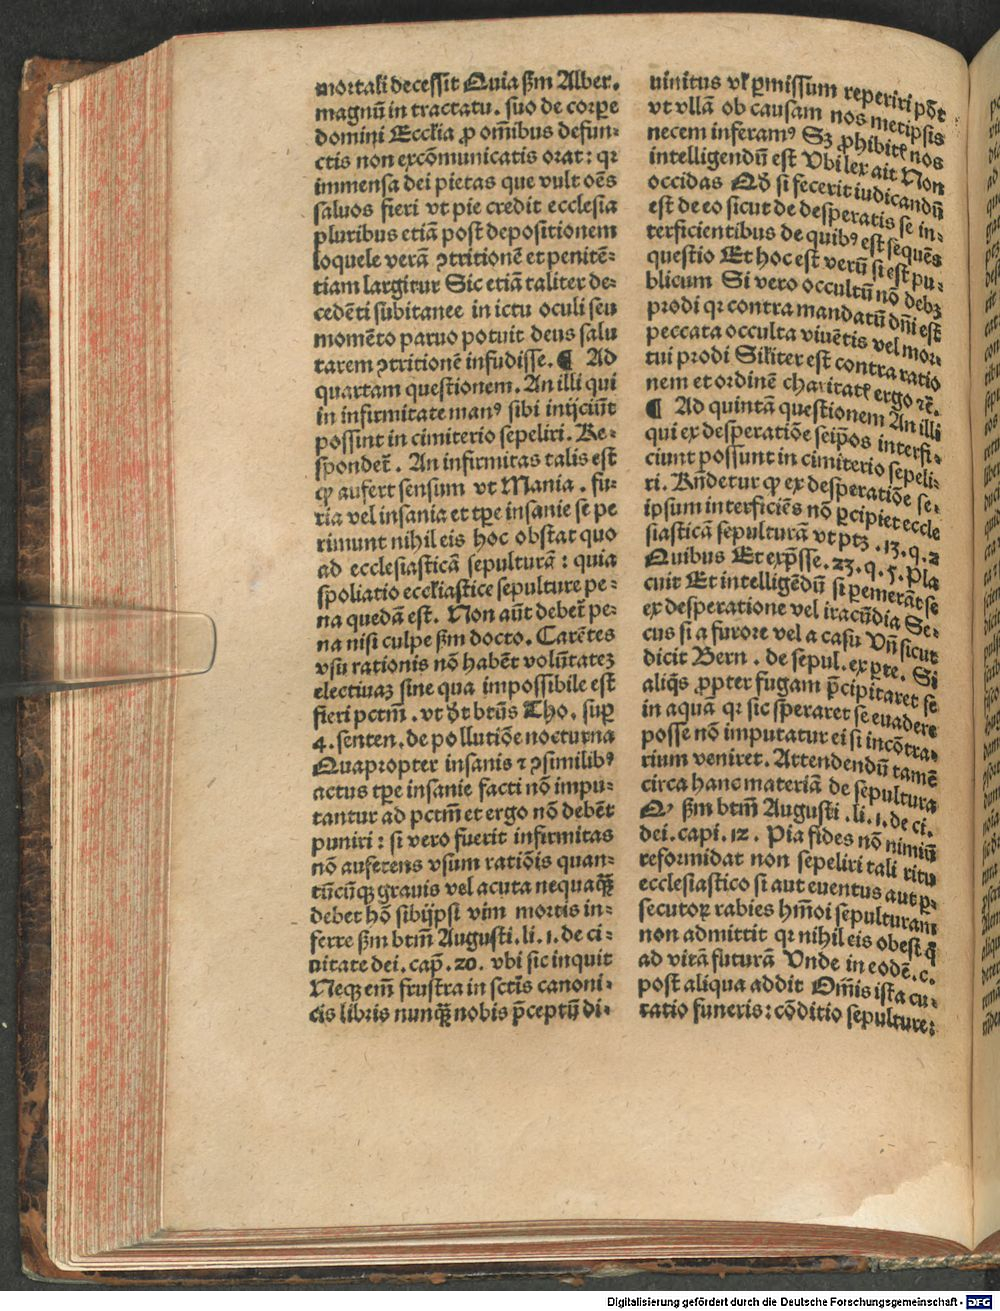 mortali decessit Quia ẜm Alber.
magnū in tractatu. suo de corpe
domini Ecclia ꝓ om̄ibus defun⸗
ctis non excōmunicatis orat: qꝛ
immensa dei pietas que vult oēs
saluos fieri vt pie credit ecclesia
pluribus etiā post depositionem
loquele verā ꝯtritionē et penitē⸗
tiam largitur Sic etiā taliter de⸗
cedēti subitanee in ictu oculi seu
momēto paruo potuit deus salu
tarem ꝯtritionē infudisse. ¶ Ad
quartam questionem. An illi qui
in infirmitate manꝰ sibi inijciūt
possint in cimiterio sepeliri. Re⸗
spondet̄. An infirmitas talis est
ꝙ aufert sensum vt Mania. fu⸗
ria vel insania et tꝑe insanie se pe
rimunt nihil eis hoc obstat quo
ad ecclesiasticā sepulturā: quia
spoliatio ecclīastice sepulture pe⸗
na quedā est. Non aūt debet̄ pe⸗
na nisi culpe ẜm docto. Carētes
vsu rationis nō habēt volūtateꝫ
electiuaꝫ sine qua impossibile est
fieri pctm̄. vt dꝛt btūs Tho. suꝑ
4. senten. de pollutiōe nocturna
Quapropter insanis ⁊ ꝯsimilibꝰ
actus tꝑe insanie facti nō impu⸗
tantur ad pctm̄ et ergo nō debēt
puniri: si vero fuerit infirmitas
nō auferens vsum ratiōis quan⸗
tūcūqꝫ grauis vel acuta nequaꝗ̄
debet hō sibijpsi vim mortis in⸗
ferre ẜm btm̄ Augusti. li. 1. de ci⸗
uitate dei. cap. 20. vbi sic inquit
Neqꝫ em̄ frustra in sctīs canoni⸗
cis libris nunꝗ̄ nobis p̄ceptū di⸗
uinitus vl ꝑmissum reperiri põt
vt vllā ob causam nos metipsis
necem inferamꝰ Sꝫ ꝓhibitꝭ nos
intelligendū est Vbi lex ait Non
occidas Qd si fecerit iudicandū
est de eo sicut de desperatis se in⸗
terficientibus de quibꝰ est sequēs
questio Et hoc est verū si est pu⸗
blicum Si vero occultū nō debꝫ
prodi qꝛ contra mandatū dn̄i est
peccata occulta viuētis vel mor⸗
tui prodi Silīter est contra ratio
nem et ordinē charitatꝭ ergo ⁊c̄.
¶ Ad quintā questionem An illi
qui ex desperatiōe seip̄os interfi⸗
ciunt possunt in cimiterio sepeli⸗
ri. Rn̄detur ꝙ ex desperatiōe se⸗
ipsum interficiēs nō ꝑcipiet eccle
siasticā sepulturā vt ptꝫ .13. q. 2
Quibus Et exp̄sse. 23. q. 5. Pla
cuit Et intelligēdū si ꝑemerāt se
ex desperatione vel iracūdia Se⸗
cus si a furore vel a casu Vn̄ sicut
dicit Bern. de sepul. ex ꝑte. Si
aliqs ꝓpter fugam p̄cipitaret se
in aqua qꝛ sic speraret se euadere
posse nō imputatur ei si incōtra⸗
rium veniret. Attendendū tamē
circa hanc materiā de sepultura
Qꝫ ẜm btm̄ Augusti. li. 1. de ci.
dei. capi. 12. Pia fides nō nimiū
reformidat non sepeliri tali ritu
ecclesiastico si aut euentus aut ꝑ⸗
secutoꝝ rabies hm̄oi sepulturam
non admittit qꝛ nihil eis obest ꝗ̄
ad vitā futurā Vnde in eodē. c.
post aliqua addit Om̄is ista cu⸗
ratio funeris: cōditio sepulture:
Digitalisierung gefördert durch die Deutsche Forschungsgemeinschaft - DFG